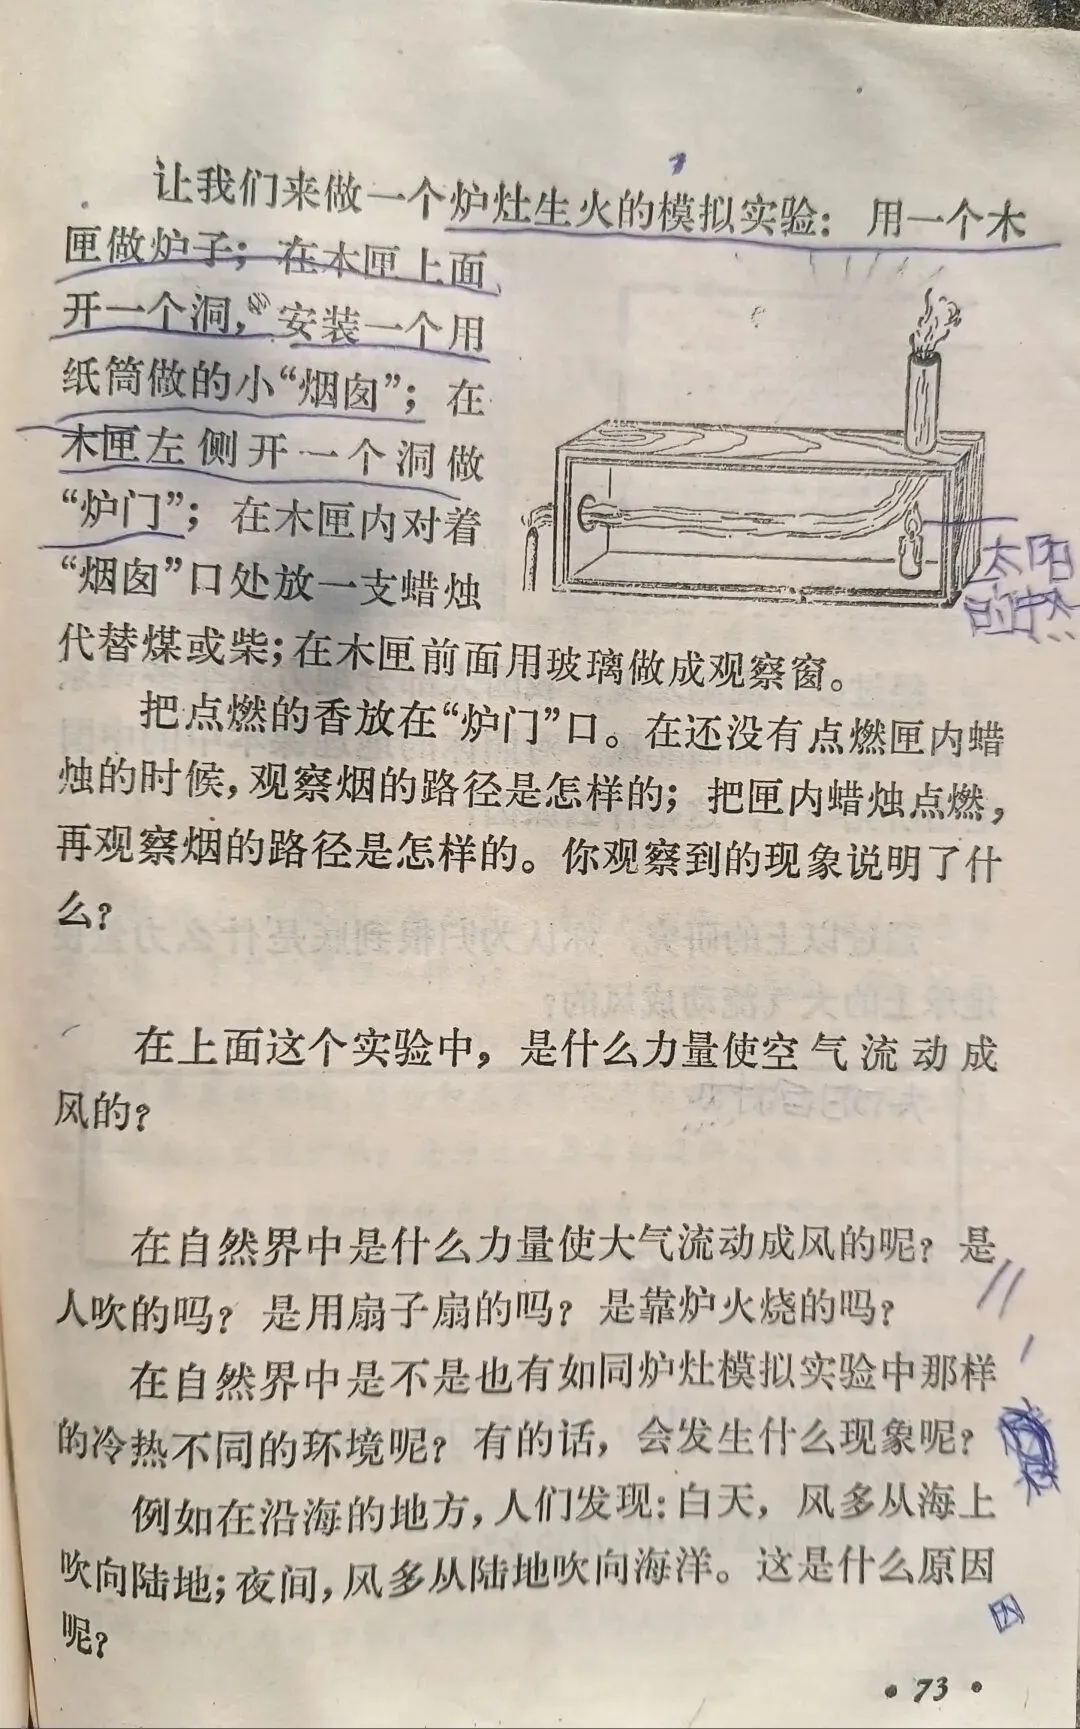 让我们来做一个炉灶生火的模拟实验：用一个木
匣做炉子；在木匣上面
开一个洞，安装一个用
纸筒做的小“烟囱”；在
木匣左侧开一个洞做
“炉门”；在木匣内对着
“烟囱”口处放一支蜡烛
太阳
的热
代替煤或柴；在木匣前面用玻璃做成观察窗。
把点燃的香放在“炉门”口。在还没有点燃匣内蜡
烛的时候，观察烟的路径是怎样的；把匣内蜡烛点燃，
再观察烟的路径是怎样的。你观察到的现象说明了什
么？
在上面这个实验中，是什么力量使空气流动成
风的？
在自然界中是什么力量使大气流动成风的呢？是
人吹的吗？是用扇子扇的吗？是靠炉火烧的吗？
在自然界中是不是也有如同炉灶模拟实验中那样
的冷热不同的环境呢？有的话，会发生什么现象呢？
例如在沿海的地方，人们发现：白天，风多从海上
吹向陆地；夜间，风多从陆地吹向海洋。这是什么原因
呢？
因
• 73 •